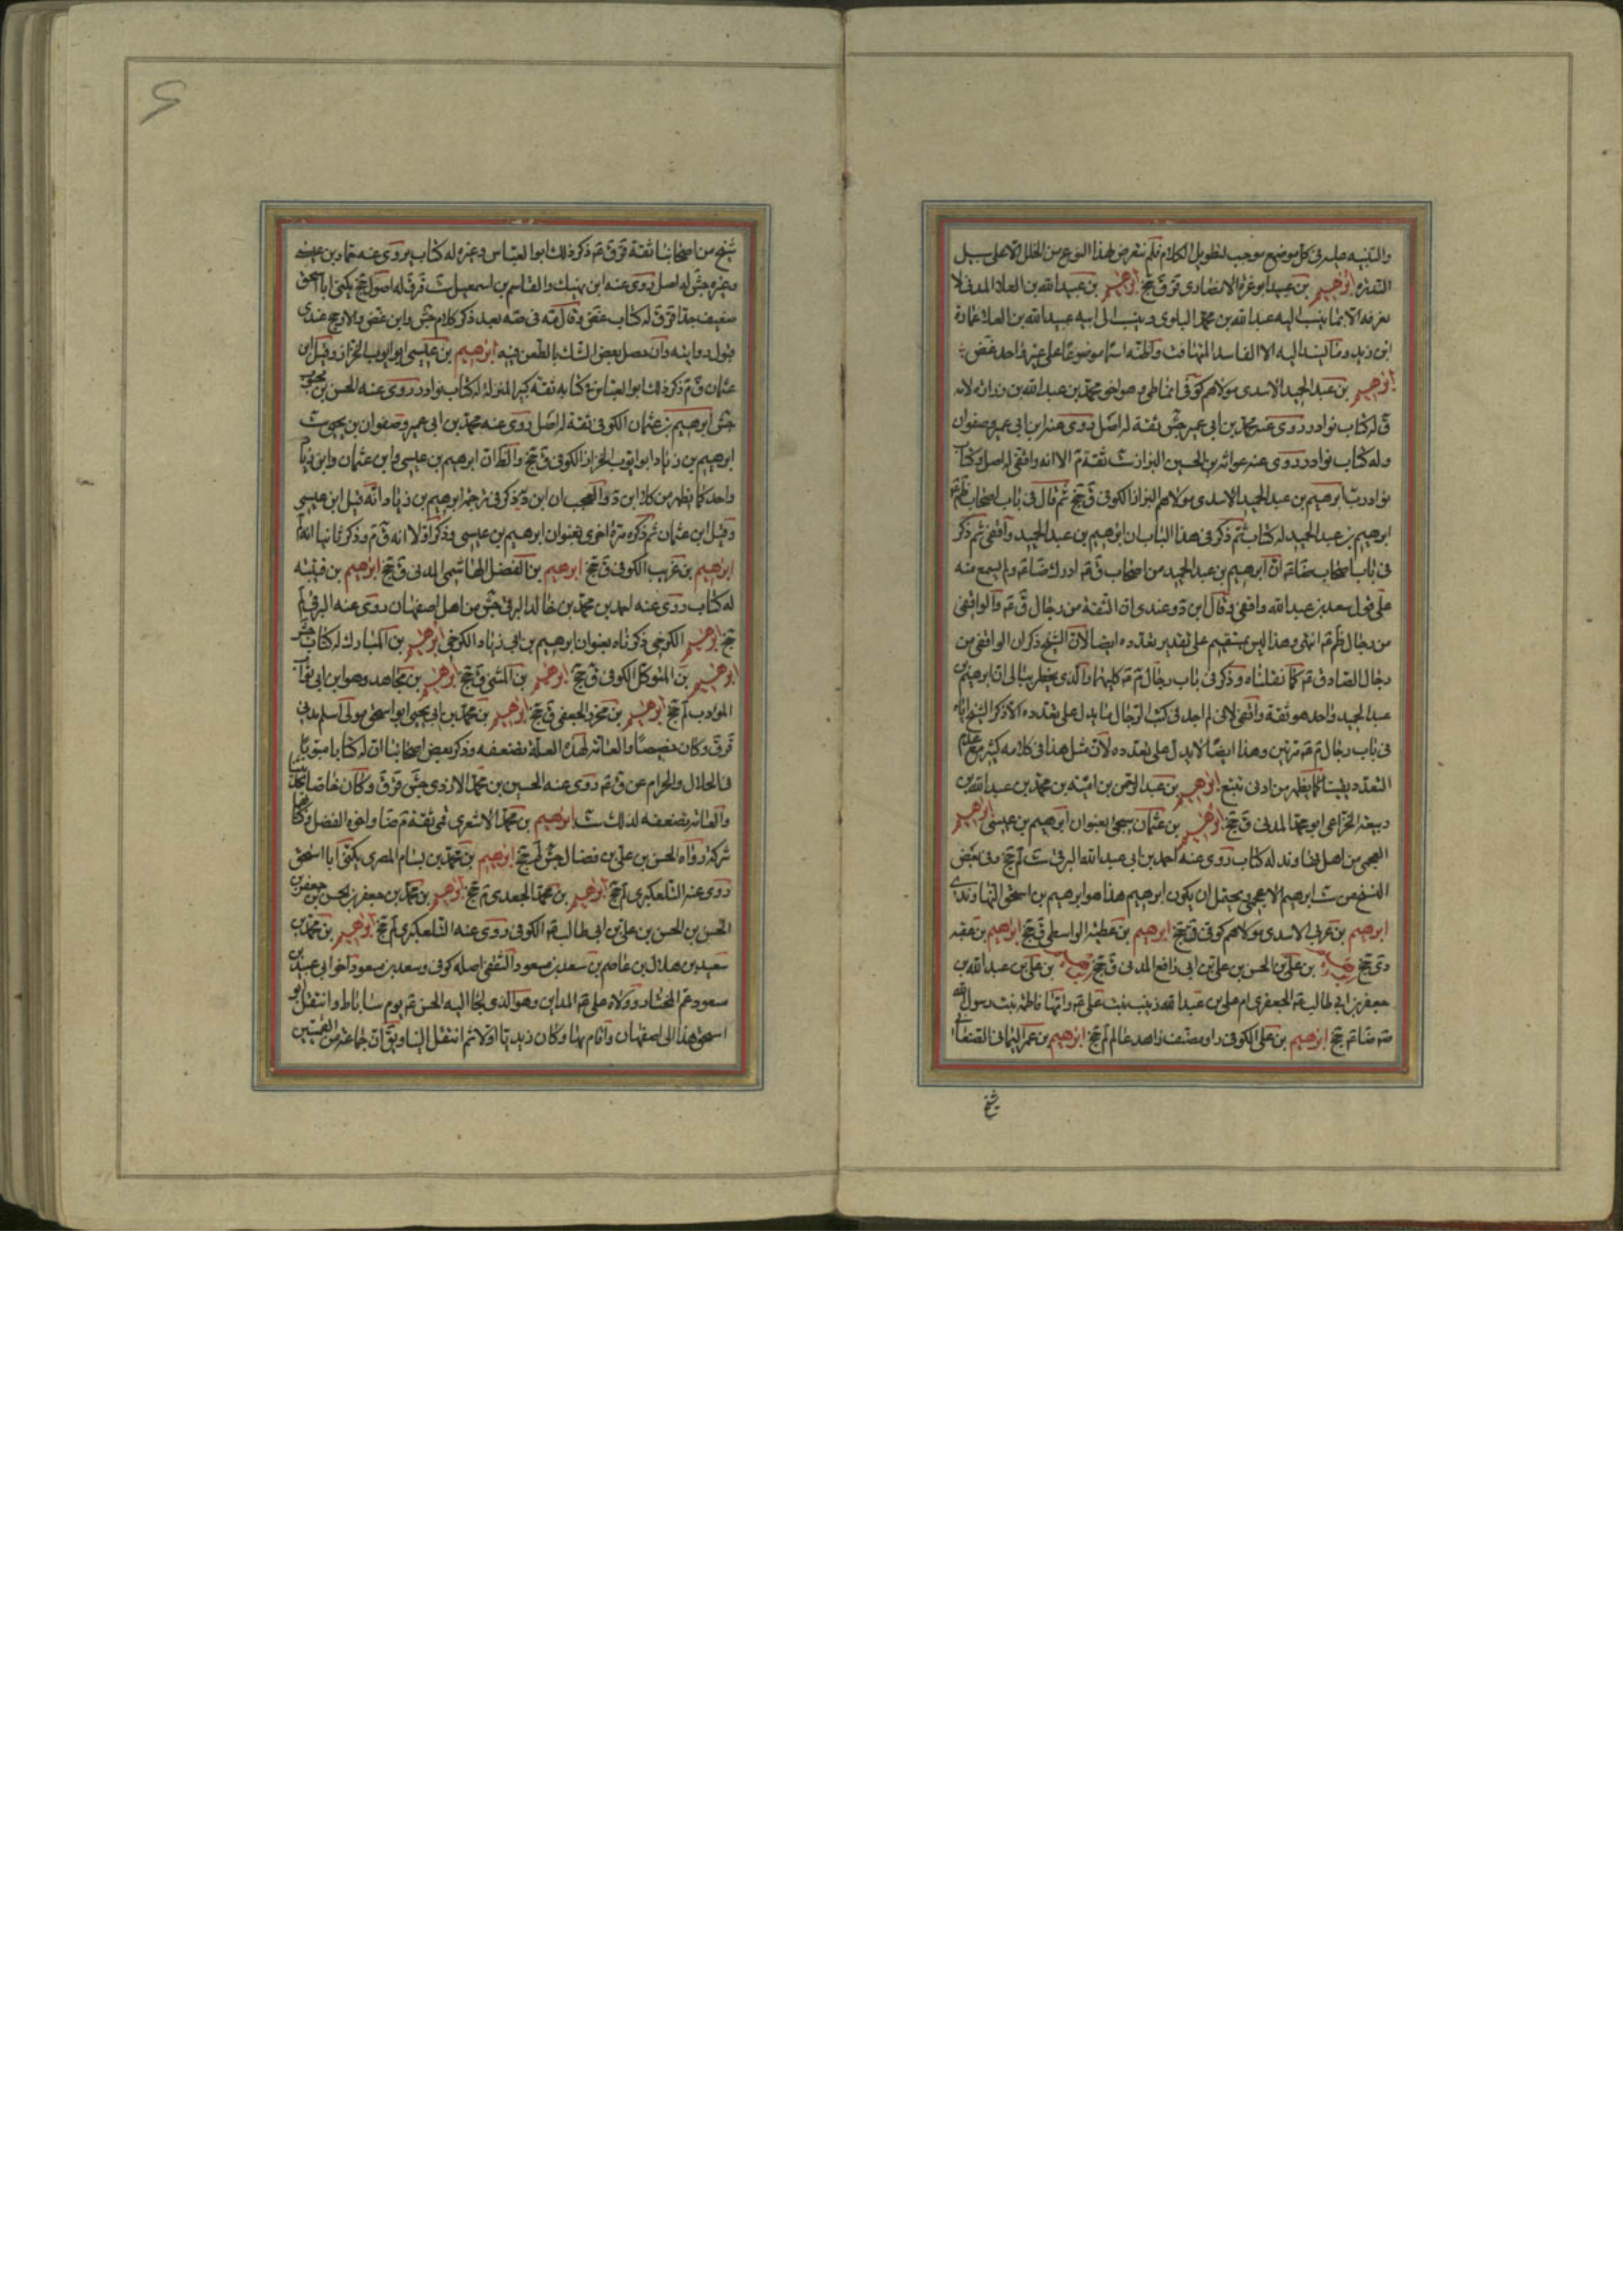 والتنبيه عليه في كل موضع موجب لتطويل الكلام فلم نتعرض لهذا النوع من الخلل الا على سبيل
الندرة ابرهيم بن عبيد ابو غرة الانصاري قر ق جخ ابرهيم بن عبيد الله بن العلا المدني لا
نعرفه الا بما ينسب اليه عبد الله بن محمد البلوي وينسب الى ابيه عبيد الله بن العلا عمارة
ابن زيد وما يسند اليه الا الفاسد المتهافت واظنه اسما موضوعا على غير واحد غض
ابرهيم بن عبد الحميد الاسدي مولاهم كوفي انماطي وهو اخو محمد بن عبد الله بن زرارة لامه
ق له كتاب نوادر روى عنه محمد بن ابي عمير جش ثقة له اصل روى عنه ابن ابي عمير وصفوان
وله كتاب نوادر روى عنه عوانة بن الحسين البزاز ست ثقة م الا انه واقفي له اصل وكتاب
نوادر ب ابرهيم بن عبد الحميد الاسدي مولاهم البزاز الكوفي ق جخ ثم قال في باب اصحاب ظم
ابرهيم بن عبد الحميد له كتاب ثم ذكر في هذا الباب ان ابرهيم بن عبد الحميد واقفي ثم ذكر
في باب اصحاب ضا ان ابرهيم بن عبد الحميد من اصحاب ق ادرك ضا ولم يسمع منه
على قول سعد بن عبد الله واقفي وقال ابن د وعندي ان الثقة من رجال ق والواقفي
من رجال ظم انتهى وهذا ليس بمستقيم على تقدير تعدده ايضا لان الشيخ ذكر ان الواقفي من
رجال الصادق كما نقلناه وذكر في باب رجال كليهما والذي يخطر ببالي ان ابرهيم بن
عبد الحميد واحد هو ثقة واقفي لاني لم اجد في كتب الرجال ما يدل على تعدده الا ذكر الشيخ اياه
في باب رجال مرتين وهذا ايضا لا يدل على تعدده لان مثل هذا في كلامه كثير مع عدم
التعدد يقينا كما يظهر من ادنى تتبع ابرهيم بن عبد الرحمن بن امية بن محمد بن عبد الله بن
ربيعة الخزاعي ابو محمد المدني ق جخ ابرهيم بن عثمان سيجئ بعنوان ابرهيم بن عيسى ابرهيم
العجمي من اهل نهاوند له كتاب روى عنه احمد بن ابي عبد الله البرقي ست لم جخ وفي بعض
النسخ من ست ابرهيم الاعجمي يحتمل ان يكون ابرهيم هذا هو ابرهيم بن اسحق النهاوندي
ابرهيم بن عربي الاسدي مولاهم كوفي ق جخ ابرهيم بن عطية الواسطي ق جخ ابرهيم بن عقبة
دى جخ ابرهيم بن علي بن الحسن بن علي بن ابي رافع المدني ق جخ ابرهيم بن علي بن عبد الله بن
جعفر بن ابي طالب الجعفري ام علي بن عبد الله زينب بنت علي وامها فاطمة بنت رسول الله
ضا جخ ابرهيم بن علي الكوفي راو مصنف زاهد عالم لم جخ ابرهيم بن عمر اليماني الصنعاني
شيخ
شيخ من اصحابنا ثقة قر ق ذكر ذلك ابو العباس وغيره له كتاب يروى عنه حماد بن عيسى
وغيره جش له اصل روى عنه ابن نهيك والقاسم بن اسمعيل ست قر ق له اصول جخ يكنى ابا اسحق
ضعيف جدا قر ق له كتاب غض وقال مه في صه بعد ذكر كلام جش وابن غض والارجح عندي
قبول روايته وان حصل بعض الشك بالطعن فيه ابرهيم بن عيسى ابو ايوب الخزاز وقيل ابن
عثمان ق م ذكر ذلك ابو العباس في كتابه ثقة كبير المنزلة له كتاب نوادر روى عنه الحسن بن محبوب
جش ابرهيم بن عثمان الكوفي ثقة له اصل روى عنه محمد بن ابي عمير وصفوان بن يحيى ست
ابرهيم بن زياد ابو ايوب الخزاز الكوفي ق جخ والظ ان ابرهيم بن عيسى وابن عثمان وابن زياد
واحد كما يظهر من كلام ابن د والعجب ان ابن د ذكر في ترجمة ابرهيم بن زياد انه قيل ابن عيسى
وقيل ابن عثمان ثم ذكره مرة اخرى بعنوان ابرهيم بن عيسى وذكر اولا انه ق م وذكر ثانيا انه
ابرهيم بن غريب الكوفي ق جخ ابرهيم بن الفضل الهاشمي المدني ق جخ ابرهيم بن قتيبة
له كتاب روى عنه احمد بن محمد بن خالد البرقي جش من اهل اصفهان روى عنه البرقي لم
جخ ابرهيم الكرخي ذكرناه بعنوان ابرهيم بن ابي زياد الكرخي ابرهيم بن المبارك له كتاب جش
ابرهيم بن المتوكل الكوفي ق جخ ابرهيم بن المثنى ق جخ ابرهيم بن مجاهد وهو ابن ابي
المؤدب لم جخ ابرهيم بن محرز الجعفي ق جخ ابرهيم بن محمد بن ابي يحيى ابو اسحق مولى اسلم مدني
قر ق وكان خصيصا والعامة لهذه العلة تضعفه وذكر بعض اصحابنا ان له كتابا مبوبا
في الحلال والحرام عن ق روى عنه الحسين بن محمد الازدي جش قر ق وكان خاصا بحديثنا
والعامة تضعفه لذلك ست ابرهيم بن محمد الاشعري قمي ثقة م ضا واخوه الفضل وكتابهما
شركة رواه الحسن بن علي بن فضال جش لم جخ ابرهيم بن محمد بن بسام المصري يكنى ابا اسحق
روى عنه التلعكبري لم جخ ابرهيم بن محمد الجعدي م جخ ابرهيم بن محمد بن جعفر بن الحسن بن جعفر بن
الحسن بن الحسن بن علي بن ابي طالب الكوفي روى عنه التلعكبري لم جخ ابرهيم بن محمد بن
سعيد بن هلال بن عاصم بن سعد بن مسعود الثقفي اصله كوفي وسعد بن مسعود اخو ابي عبيد بن
مسعود عم المختار وولاه علي المداين وهو الذي لجأ اليه الحسن يوم ساباط وانتقل ابو
اسحق هذا الى اصفهان واقام بها وكان زيديا اولا ثم انتقل الينا ويق ان جماعة من القميين